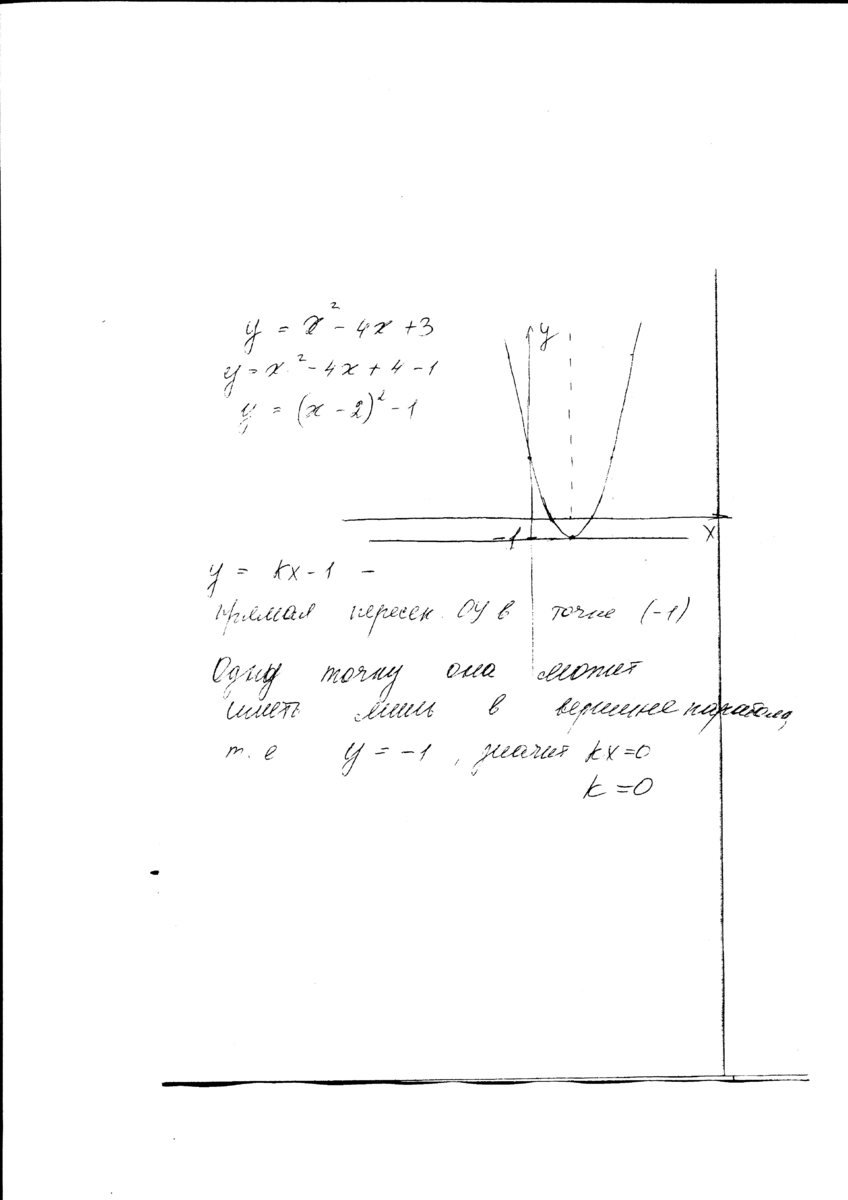 y = x² - 4x + 3
y = x² - 4x + 4 - 1
y = (x - 2)² - 1
y
-1
x
y = kx - 1 -
прямая пересек. OY в точке (-1)
Одну точку она может
иметь лишь в вершине параболы,
т.е y = -1, значит kx = 0
k = 0